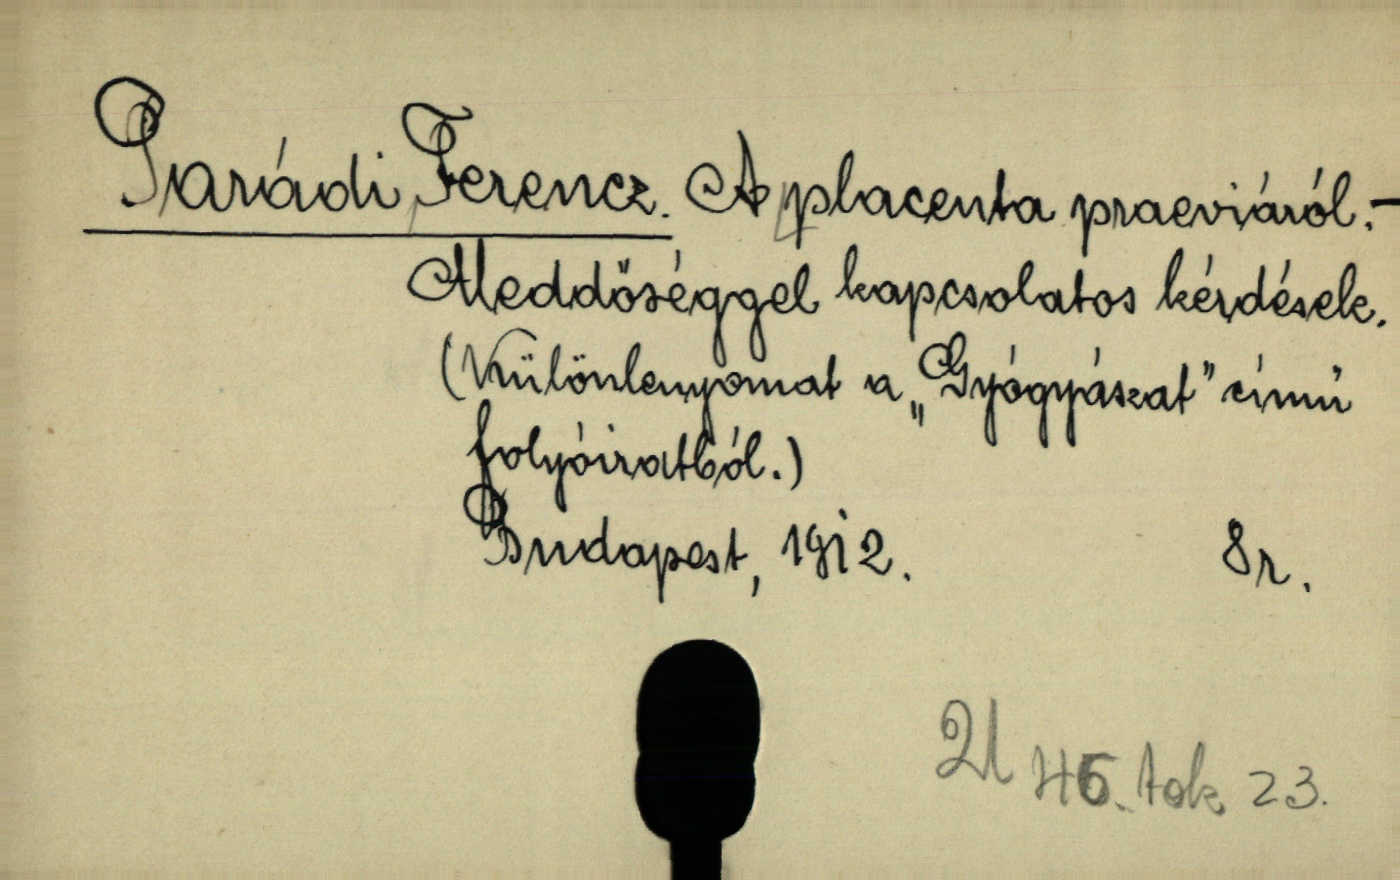 Parádi Ferencz. A placenta praeviáról.-
Meddőséggel kapcsolatos kérdések.
(Különlenyomat a „Gyógyászat" című
folyóiratból.)
Budapest, 1912. 8r.
tok 23.